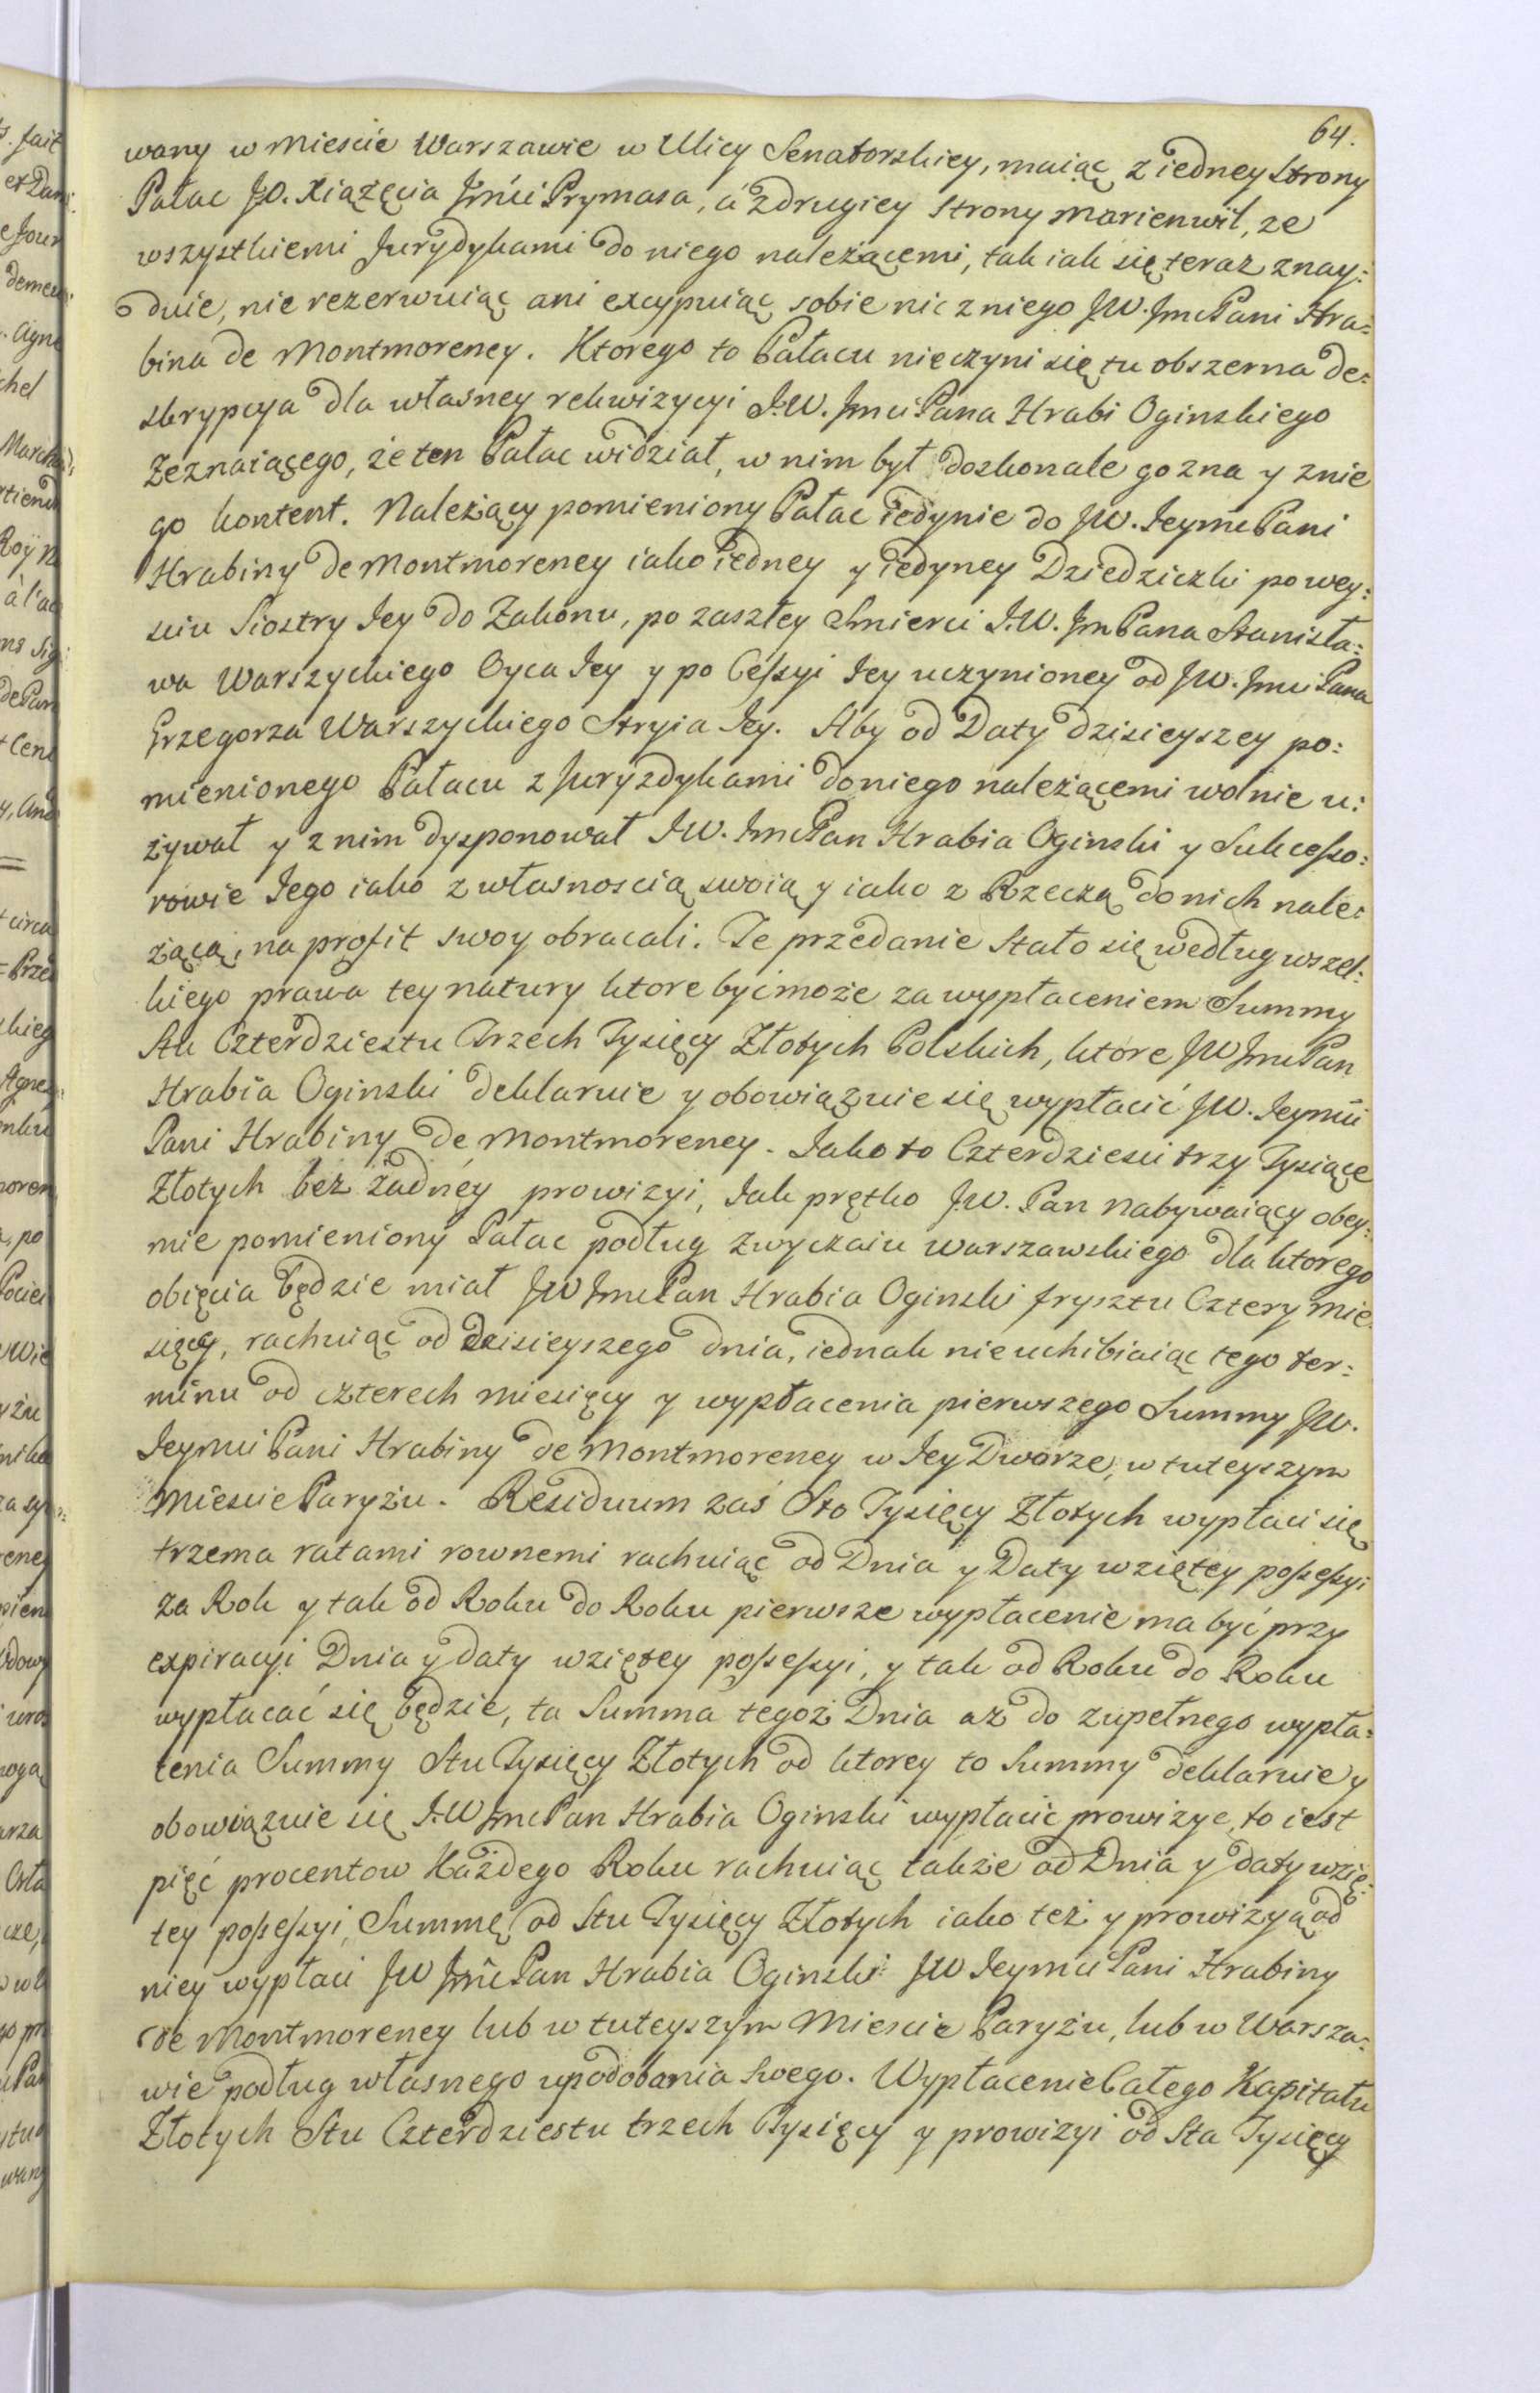 64.
wany w Miescie Warszawie w Ulicy Senatorskiey, maiąc z iedney Strony
Pałac JO. Xiązęcia Jmći Prymasa, á zdrugiey Strony Marienwil, ze
wszystkiemi Jurydykami do niego należącemi, tak iak się teraz znay:
duie, nie rezerwuiąc ani excypuiąc sobie nic z niego JW. JmcPani Hra:
bina de Montmorency. Ktorego to Pałacu nieczyni się tu obszerna de:
skrypcya dla własney rekwizycyi J.W. JmciPana Hrabi Oginskiego
Zeznaiącego, że ten Pałac widział, w nim był doskonale go zna y znie
go kontent. Należący pomieniony Pałac iedynie do JW. JeymcPani
Hrabiny de Montmorency iako iedney y iedyney Dziedziczki po wey:
sciu Siostry Jey do Zakonu, po zaszłey Smierci J.W. JmPana Stanisła:
wa Warszyckiego Oyca Jey y po Cessyi Jey uczynioney od JW. JmciPana
Grzegorza Warszyckiego Stryia Jey. Aby od Daty dzisieyszey po:
mienionego Pałacu z Juryzdykami doniego należącemi wolnie u:
żywał y z nim dysponował J.W. JmcPan Hrabia Oginski y Sukcesso:
rowie Jego iako z własnoscią swoią y iako z Rzeczą donich nale:
żącą, na profit swoy obracali. Te przedanie Stało się według wszel:
kiego prawa tey natury ktore być może za wypłaceniem Summy
Stu Czterdziestu Trzech Tysięcy Złotych Polskich, ktore JW JmcPan
Hrabia Oginski deklaruie y obowiązuie się wypłacić JW. Jeymći
Pani Hrabiny de Montmorency. Jako to Czterdziesci trzy Tysiące
Złotych bez żadnéy prowizyi, Jak prętko JW. Pan nabywaiący obey:
mie pomieniony Pałac podług zwyczaiu warszawskiego dla ktorego
obięcia będzie miał JW JmcPan Hrabia Oginski frysztu Cztery mie
sięcy, rachuiąc od dzisieyszego dnia, iednak nieuchibiaiąc tego ter:
minu od czterech miesięcy y wypłacenia pierwszego Summy JW.
JeymciPani Hrabiny de Montmorency w Jey Dworze, w tuteyszym
Miescie Paryżu. Residuum zaś Sto Tysięcy Złotych wypłaci się
trzema ratami rownemi rachuiąc od Dnia y Daty wziętey possessyi
za Rok y tak od Roku do Roku pierwsze wypłacenie ma być przy
expiracyi Dnia y daty wziętey possessyi, y tak od Roku do Roku
wypłacać się będzie, ta Summa tegoż Dnia aż do zupełnego wypła:
cenia Summy Stu Tysięcy Złotych od ktorey to Summy deklaruie y
obowiązuie się J.W JmcPan Hrabia Oginski wypłacic prowizye, to iest
pięć procentow Każdego Roku rachuiąc takżе od Dnia y daty wzię:
tey possessyi, Summę od Stu Tysięcy Złotych iako też y prowizyą od
niey wypłaci JW JmcPan Hrabia Oginski JW JeymciPani Hrabiny
de Montmorency lub w tuteyszym Miescie Paryżu, lub w Warsza:
wie podług własnego upodobania swego. Wypłacenie Całego Kapitału
Złotych Stu Czterdziestu trzech Tysięcy y prowizyi od Sta Tysięcy